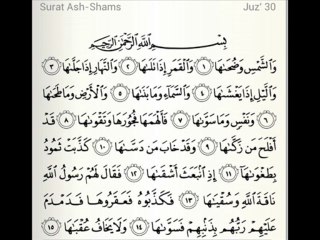 Surat Ash-Shams Juz' 30
بِسْمِ اللَّهِ الرَّحْمَٰنِ الرَّحِيمِ
وَالشَّمْسِ وَضُحَاهَا ١ وَالْقَمَرِ إِذَا تَلَاهَا ٢ وَالنَّهَارِ إِذَا جَلَّاهَا ٣
وَاللَّيْلِ إِذَا يَغْشَاهَا ٤ وَالسَّمَاءِ وَمَا بَنَاهَا ٥ وَالْأَرْضِ وَمَا طَحَاهَا
٦ وَنَفْسٍ وَمَا سَوَّاهَا ٧ فَأَلْهَمَهَا فُجُورَهَا وَتَقْوَاهَا ٨ قَدْ
أَفْلَحَ مَن زَكَّاهَا ٩ وَقَدْ خَابَ مَن دَسَّاهَا ١٠ كَذَّبَتْ ثَمُودُ
بِطَغْوَاهَا ١١ إِذِ انبَعَثَ أَشْقَاهَا ١٢ فَقَالَ لَهُمْ رَسُولُ اللَّهِ
نَاقَةَ اللَّهِ وَسُقْيَاهَا ١٣ فَكَذَّبُوهُ فَعَقَرُوهَا فَدَمْدَمَ
عَلَيْهِمْ رَبُّهُم بِذَنبِهِمْ فَسَوَّاهَا ١٤ وَلَا يَخَافُ عُقْبَاهَا ١٥